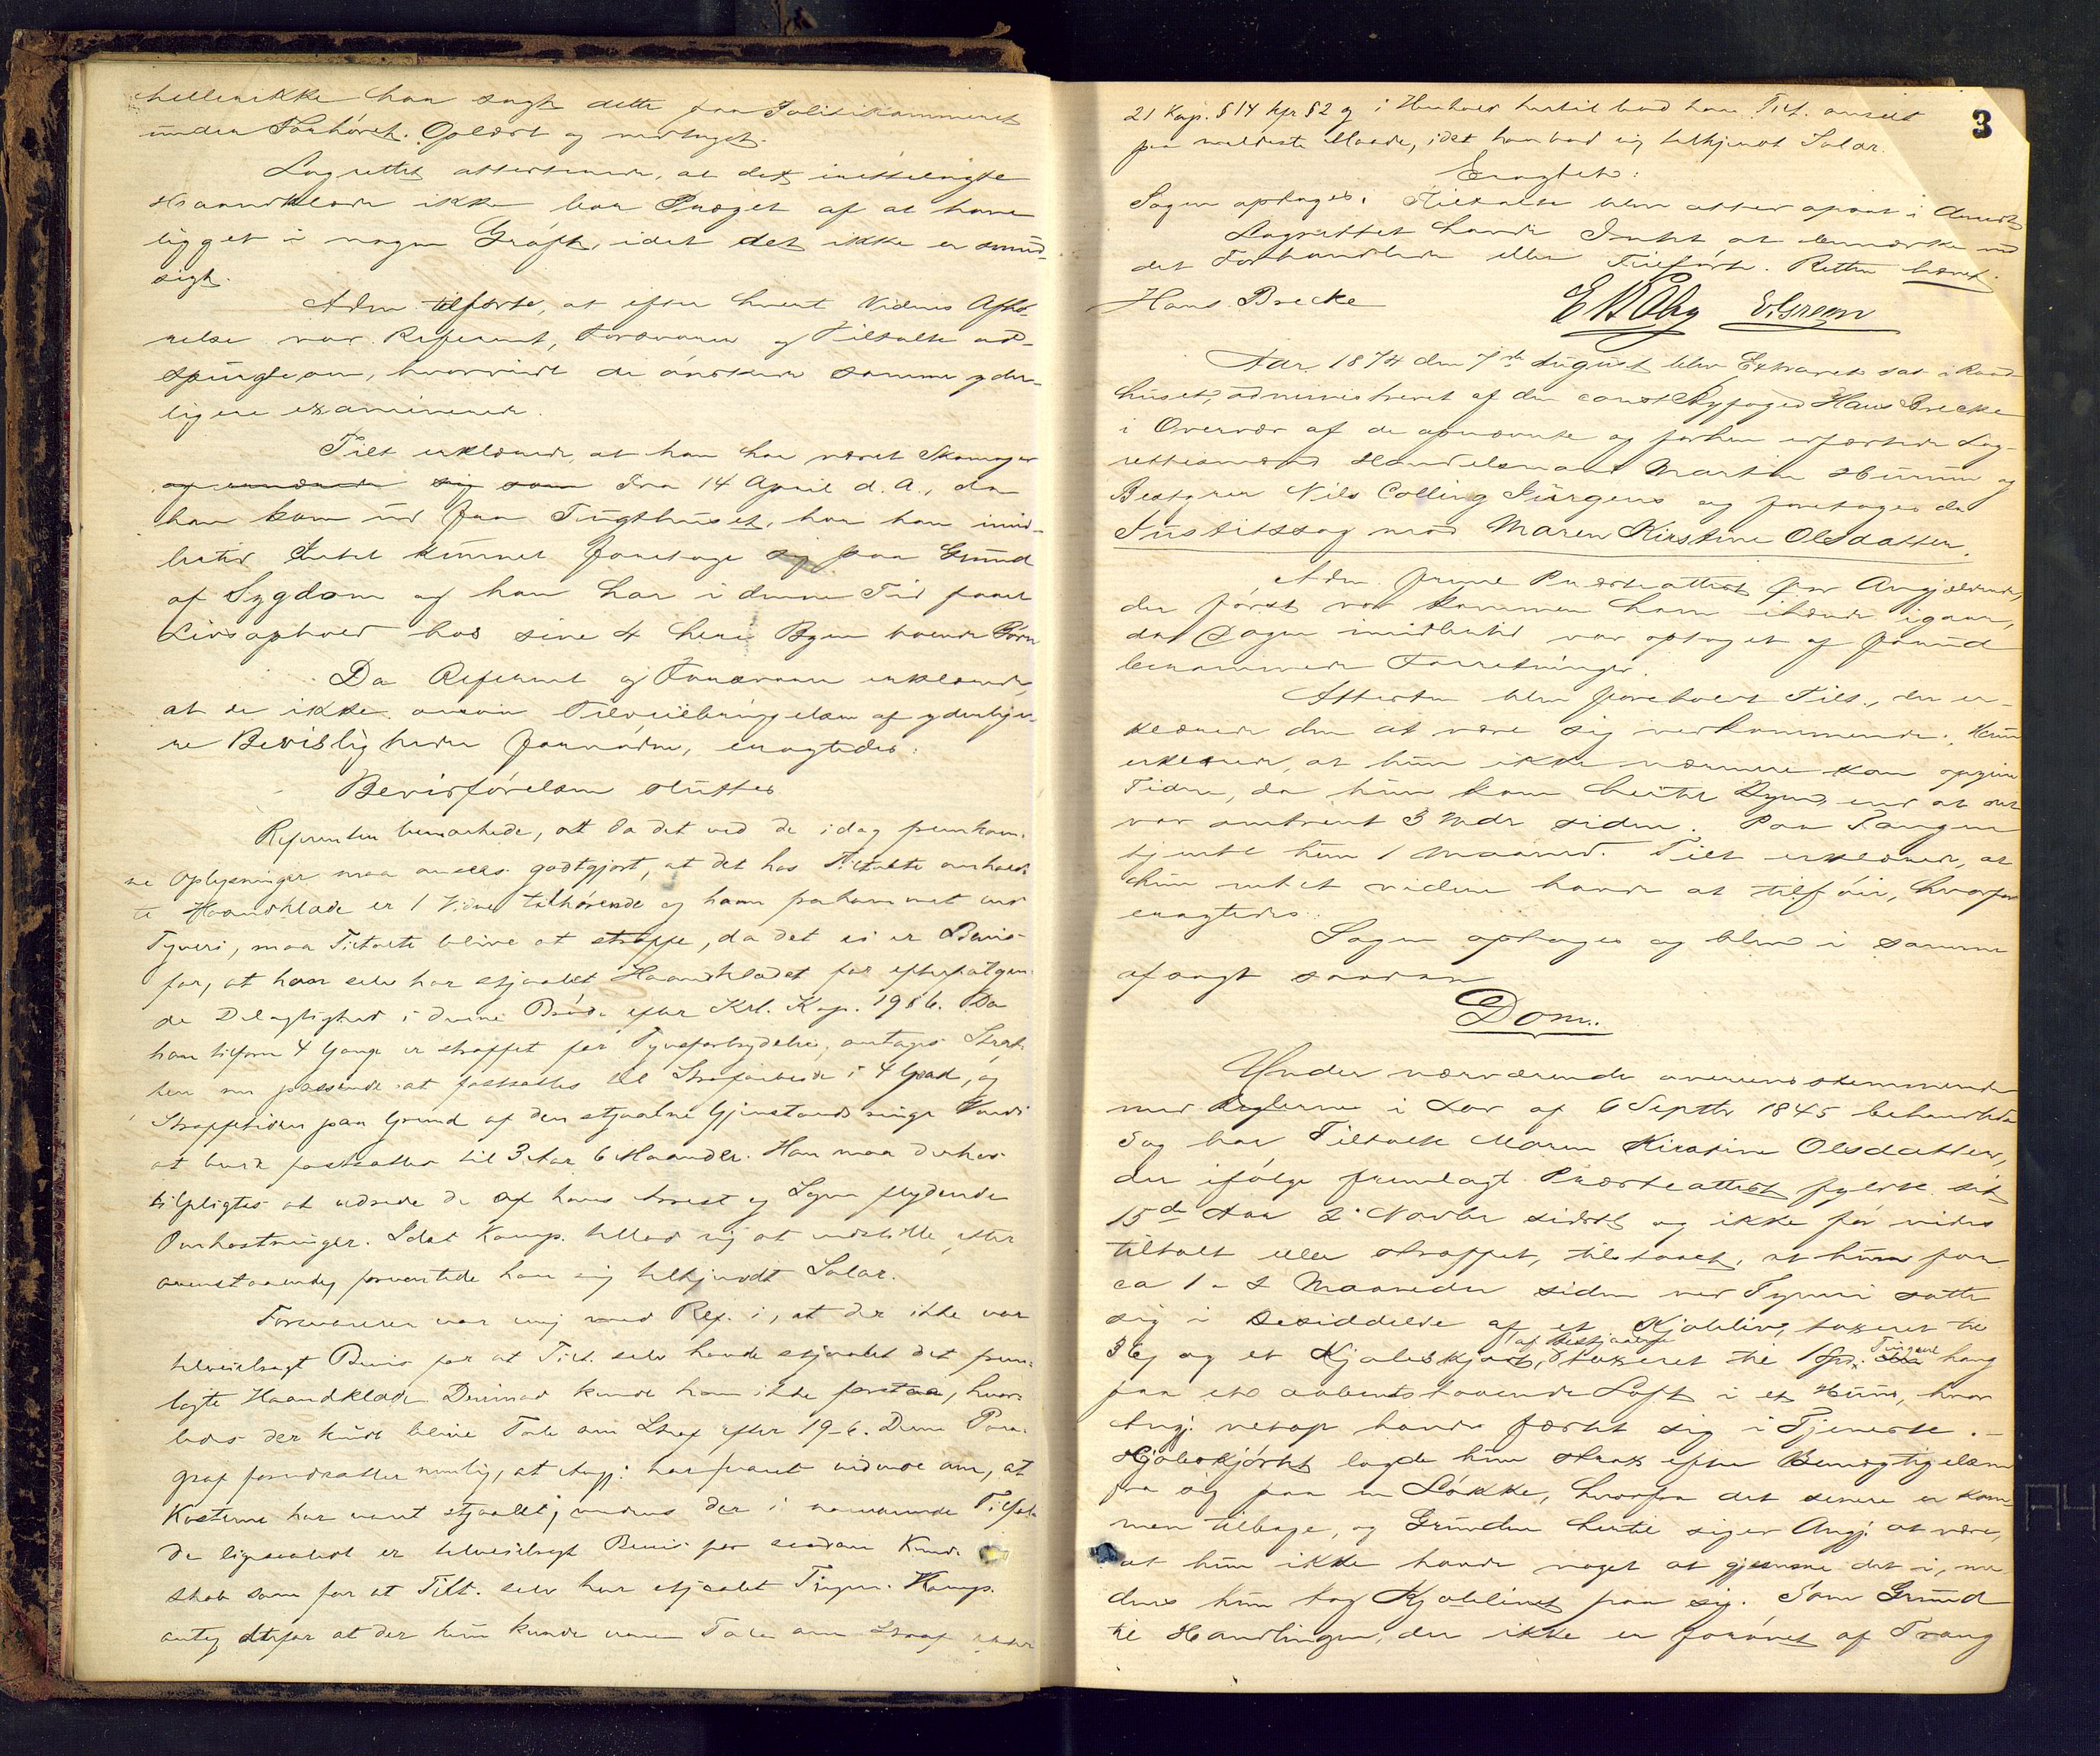 hellerikke han sagt dette paa Politikammeret
under Forhøret. Oplæst og vedtaget.
Lagrettet attesterede, at det fremlagte
Haandklæde ikke bar Præget af at have
ligget i nogen Grøft, idet det ikke er smud-
sigt.
Adm. tilførte, at efter hvert Vidnes Afhø-
relse var Referent, Forsvarer og Tiltalte ad-
spurgt om, hvorvidt de ønskede samme yder-
ligere examinerede.
Tilt erklærede, at han har været Skomager
og ernæret sig som Fra 14 April d. A., da
han kom ud fra Tugthuset, har han imid-
lertid Intet kunnet foretage sig paa Grund
af Sygdom og han har i denne Tid faaet
Livsophold hos sine 4 her i Byen boende Børn
Da Referent og Forsvarer erklærede,
at de ikke ansaa Tilveiebringelsen af yderlige-
re Bevisligheder fornøden, eragtedes:
Bevisførelsen sluttes
Referenten bemærkede, at da det ved de idag fremkom-
ne Oplysninger maa ansees godtgjort, at det hos Tiltalte anholdt
te Haandklæde er 1 Vidne tilhørende og ham frakommet ved
Tyveri, maa Tiltalte blive at straffe, da det ei er Bevis
for, at han selv har stjaalet Haandklædet for efterfølgen-
de Delagtighed i denne Brøde efter Krl. Kap. 19 § 6. Da
han tilforn 4 Gange er straffet for Tyvsforbrydelse, antages Straf-
fen nu passende at fastsættes til Strafarbeide i 4 Grad, og
Straffetiden paa Grund af den stjaalne Gjenstands ringe Værdi
at burde fastsættes til 3 Aar 6 Maaneder. Han maa derhos
tilpligtes at udrede de af hans Arrest og Sagen flydende
Omkostninger. Idet Komp. tillod sig at indstille efter
ovenstaaende, forventede han sig tilkjendt Salær.
Forsvareren var enig med Ref. i, at der ikke var
tilveiebragt Bevis for at Tilt. selv havde stjaalet det frem-
lagte Haandklæde. Derimod kunde han ikke forstaa, hvor-
ledes der kunde blive Tale om Straf efter 19-6. Denne Para-
graf forudsætter nemlig, at Angj: har været vidende om, at
Kosterne har været stjaalet, medens der i nærværende Tilfæl-
de ligesaalidt er tilveiebragt Bevis for saadan Kund-
skab som for at Tilt. selv har stjaalet Tingen. Komp.
antog derfor at der kun kunde være Tale om Straf efter
3
21 Kap. § 14 kfr § 2 og i Henhold hertil bad han Tilt. anseet
paa mildeste Maade, idet han bad sig tilkjendt Salær.
Eragtet:
Sagen optages. Tiltalte blev atter afsat i Arrest
Lagrettet havde Intet at bemærke ved
det Forhandlede eller Tilførte. Retten hævet.
Hans Brecke
Aar 1874 den 7de August blev Extraret sat i Raad-
huset administreret af den const. Byfoged Hans Brecke
i Overvær af de opnævnte og forhen edfæstede Lag-
rettesmænd Handelsmand Martin Humm og
Bestyrer Nils Colling Jürgens og foretoges da
Justitssag mod Maren Kirstine Olsdatter.
Adm. freml Præsteattest for Angjældende,
der først var kommen ham ihænde igaar,
da Sagen imidlertid var optaget af forud
berammede Forretninger.
Attesten blev foreholdt Tilt., der er-
klærede den at være sig vedkommende. Hun
erklærede, at hun ikke nærmere kan opgive
Tiden, da hun kom hertil Byen, end at det
var omtrent 3 Mdr siden. Paa Tangen
tjente hun 1 Maaned. Tilt erklærede, at
hun intet videre havde at tilføie, hvorfor
eragtedes:
Sagen optages og blev i samme
afsagt saadan
Dom:
Under nærværende overensstemmende
med Reglerne i Lov af 6 Septbr 1845 behandlede
Sag har Tiltalte Maren Kirstine Olsdatter,
der ifølge fremlagt Præsteattest fyldte sit
15de Aar 2 Novbr sidstl og ikke før vides
tiltalt eller straffet, tilstaaet, at hun for
ca 1 a 2 Maaneder siden ved Tyveri satte
sig i Besiddelse af et Kjoleliv, taxeret til
36 ß og et Kjoleskjørt, af Bestjaalne taxeret til 1 Spd. Tingene hang
paa et aabentstaaende Loft i et Huus, hvor
Angj. netop havde fæstet sig i Tjeneste. –
Kjoleskjørtet lagde hun strax efter Bemægtigelsen
fra sig paa en Løkke, hvorfra det senere er kom-
men tilbage, og Grunden hertil siger Angj. at være,
at hun ikke havde noget at gjemme det i, me-
dens hun tog Kjolelivet paa sig. Som Grund
til Handlingen, der ikke er forøvet af Trang